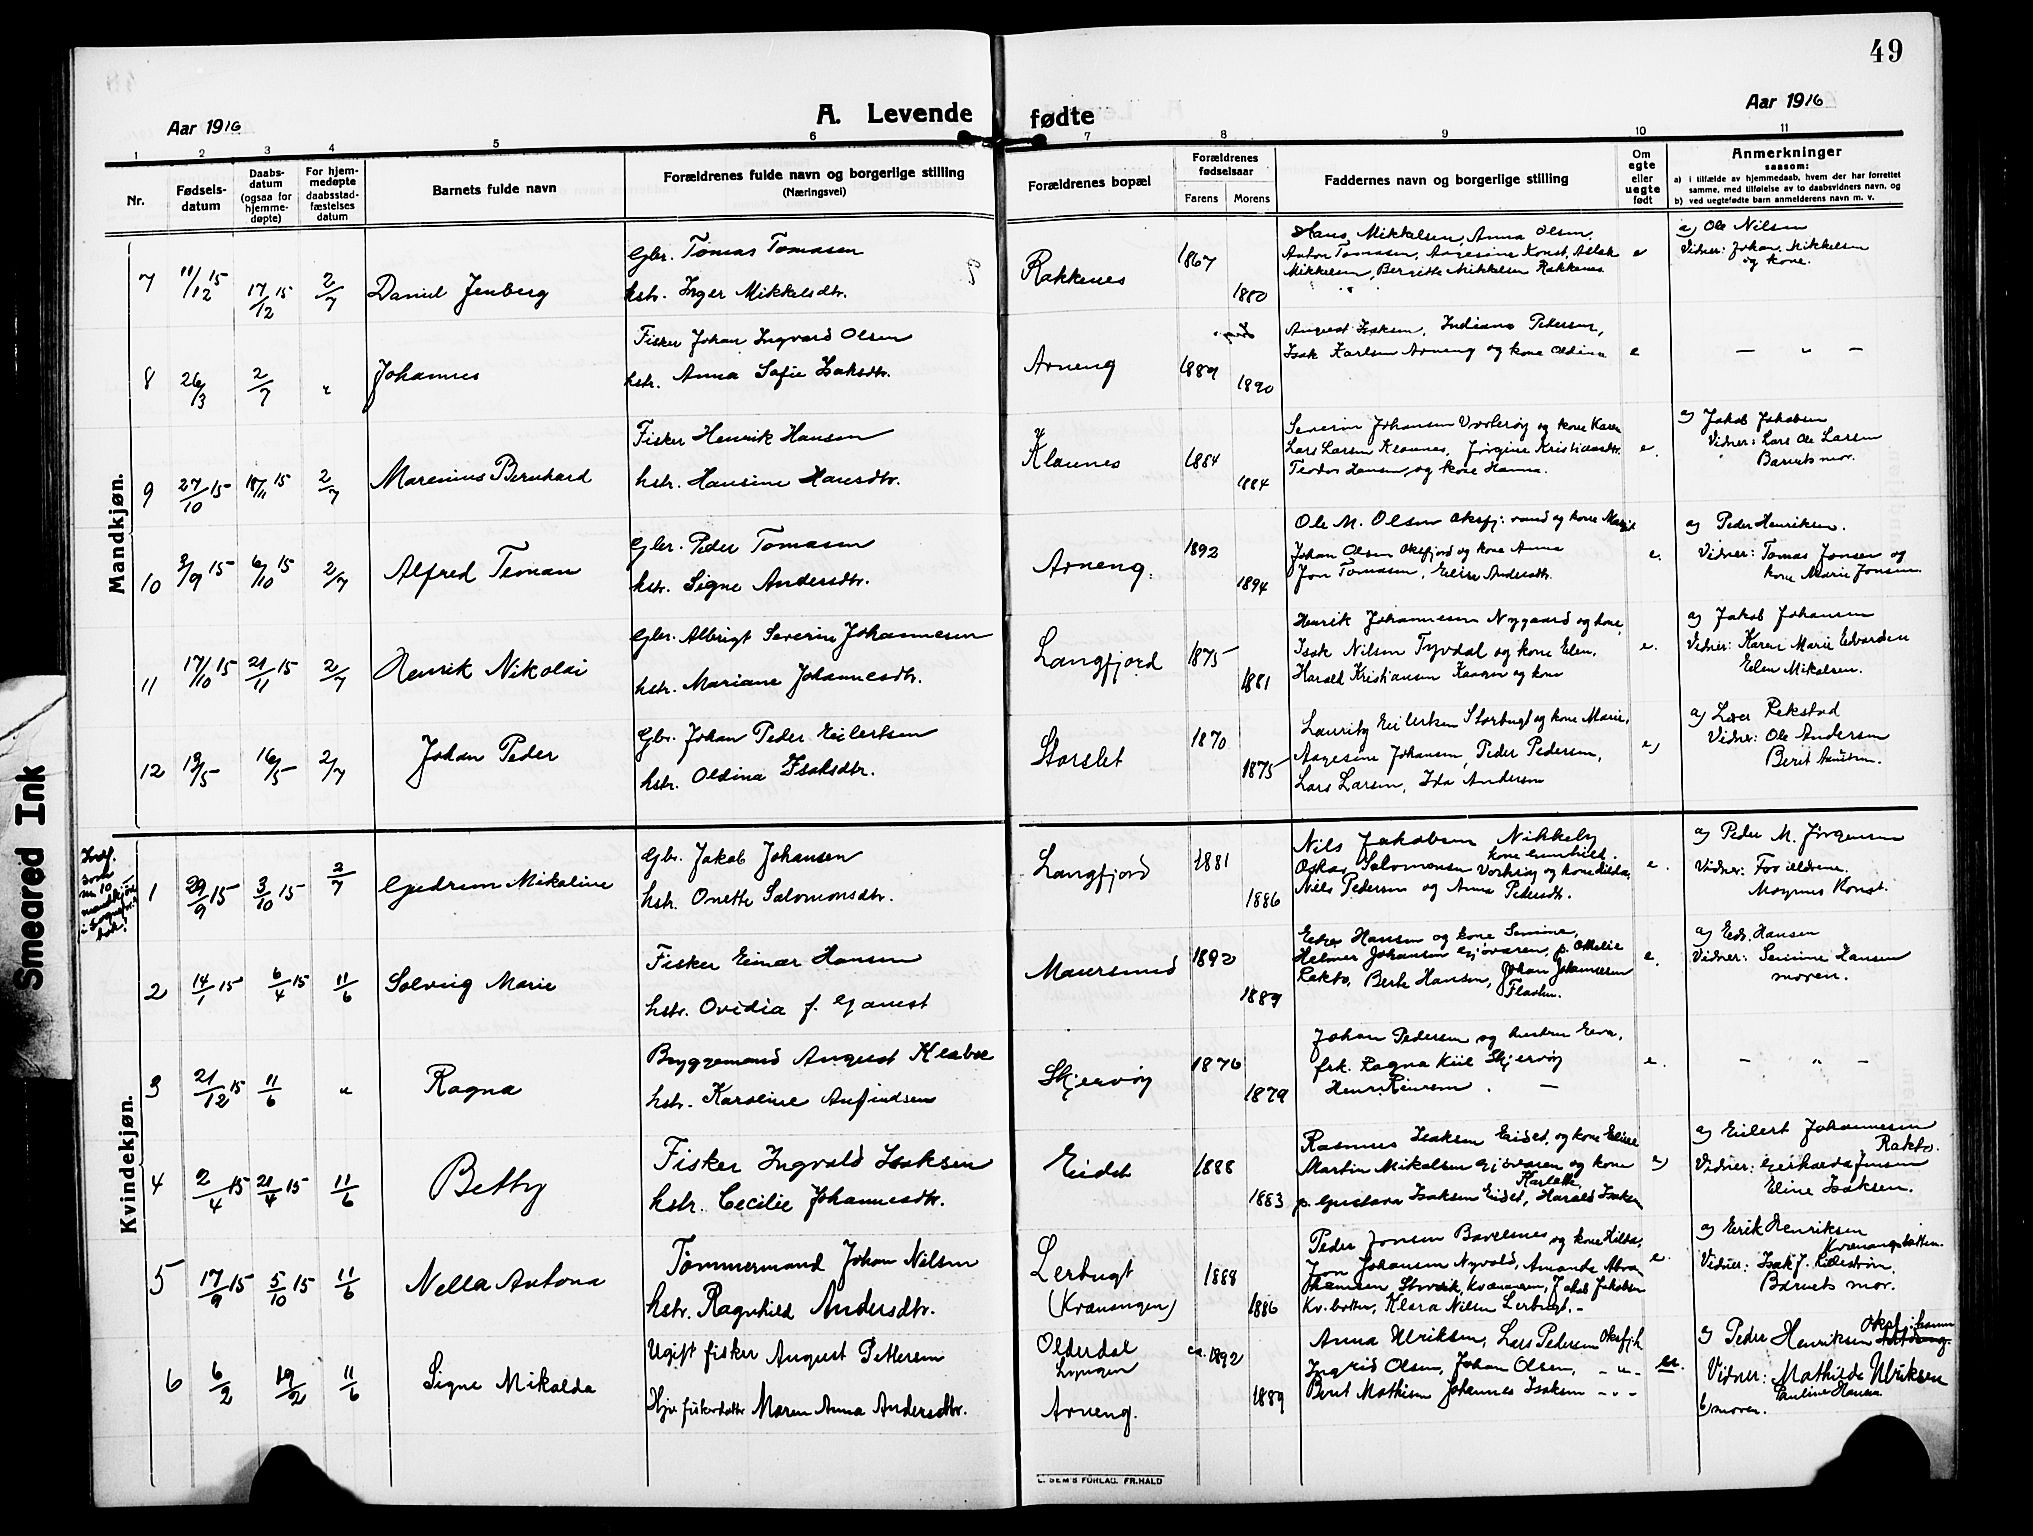 49
Aar 1916
A. Levende fødte
Aar 1916
1 2 3 4 5 6 7 8 9 10 11
Nr.
Fødsels-
datum
Daabs-
datum
(ogsaa for
hjemme-
døpte)
For hjem-
medøpte
daabsstad-
fæstelses
datum
Barnets fulde navn
Forældrenes fulde navn og borgerlige stilling
(Næringsvei)
Forældrenes bopæl
Forældrenes
fødselsaar
Farens Morens
Faddernes navn og borgerlige stilling
Om
egte
eller
uegte
født
Anmerkninger
saasom:
a) i tilfælde av hjemmedaab, hvem der har forrettet
samme, med tilføielse av to daabsvidners navn, og
b) ved uegtefødte barn anmelderens navn m. v.
Mandkjøn.
7 11/12 15 17/12 15 2/7 Daniel Jenberg
Gbr. Tomas Tomasen
hstr. Inger Mikkelsdtr.
Rakkenes 1867 1880
Hans Mikkelsen, Anna Olsen,
Anton Tomassen, Aagesine Konst, Aslak
Mikkelsen, Bergitte Mikkelsen Rakkenes
e
a) Ole Nilsen
Vidner: Johan Mikkelsen
og kone.
8 26/3 2/7 " Johannes
Fisker Johan Ingvard Olsen
hstr. Anna Sofie Isaksdtr.
Arneng 1889 1890
August Isaksen, Indiana Petersen,
Isak Karlsen Arneng og kone Oldina
e
— " —
9 27/10 15 18/11 15 2/7 Marenius Bernhard
Fisker Henrik Hansen
hstr. Hansine Hansdtr.
Klaunes 1884 1884
Severin Johansen Vorterøy og kone Karen
Lars Larsen Klaunes, Jørgine Kristiansdtr.
Teodor Hansen og kone Hanna.
e.
a) Jakob Jakobsen
Vidner: Lars Ole Larsen
Barnets mor.
10 3/9 15 6/10 15 2/7 Alfred Teman
Gbr. Peder Tomasen
hstr. Signe Andersdtr.
Arneng. 1892 1894
Ole M. Olsen Oksfj: vand og kone Margit
Johan Olsen Oksfjord og kone Anna
Jon Tomasen, Elise Andersdtr.
e.
a) Peder Henriksen.
Vidner: Tomas Jonsen og
kone Marie Jonsen.
11 17/10 15 21/11 15 2/7 Henrik Nikolai
Gbr. Albrigt Severin Johannesen
hstr. Mariane Johannesdtr.
Langfjord 1875 1881
Henrik Johannesen Nygaard og kone,
Isak Nilsen Tyvdal og kone Elen,
Harald Kristiansen Kaagen og kone
e.
a) Jakob Johansen
Vidner: Karen Marie Edvardsen
Elen Mikalsen.
12 19/5 16/5 2/7 Johan Peder
Gbr. Johan Peder Eilertsen
hstr. Oldina Isaksdtr.
Storslet 1870 1875
Lauritz Eilertsen Storbugt og kone Marie,
Aagesine Johansen, Peder Pedersen,
Lars Larsen, Ida Andersen
e)
a) Lær Rekstad
Vidner: Ole Andersen
Berit
Kvindekjøn.
1 29/9 15 3/10 15 2/7 Gudrun Mikaline
Gbr. Jakob Johansen
hstr. Onette Salomonsdtr.
Langfjord 1881 1886
Nils Jakobsen Nikkeby
kone Gunhild.
Oskar Salomonsen Vorterøy og kone Hilda,
Nils Pedersen og Anna Pedersdtr.
e.
a) Peder M. Jørgensen
Vidner: Forældrene.
Magnus Konst.
2 14/1 15 6/4 15 11/6 Solveig Marie
Fisker Einar Hansen
hstr. Ovidia f. Ganest
Maursund 1892 1889
Hansen og kone Senine,
Helmer Johansen Gjøvaren, p. Othelie
Rakto, Berte Hansen, Johan Johannesen
e.
a) Edv. Hansen
Vidner: Senine Hansen
moren.
3 21/12 15 11/6 " Ragna
Bryggemand August Klaboe
hstr. Karoline Anfindsen
Skjervøy 1876 1879
Johan Pedersen og hustru Eeva,
frk. Ragna Kiil Skjervøy
Henr. Einersen. —
e.
— " —
4 2/4 15 21/4 15 11/6 Betty
Fisker Ingvald Isaksen
hstr. Cecilie Johannesdtr.
Eidet 1888 1883
Rasmus Isaksen Eidet, og kone Elise
Martin Mikalsen Gjøvaren og kone
Karlotte,
p. Gustava Isaksen Eidet, Harald Isaksen
e)
a) Eilert Johannesen
Rakto.
Vidner: Gerharda Jensen
Eline Isaksen.
5 17/9 15 5/10 15 11/6 Nella Antona
Tømmermand Johan Nilsen
hstr. Ragnhild Andersdtr.
Lerbugt
(Kvænangen) 1888 1886
Peder Jonsen Bavelsnes og kone Hilda,
Jon Johansen Nyvold, Amanda
Storvik, Kvænangen, Jakob Jakobsen
Kv. botten, Klara Nilsen Lerbugt. -
e.
a) Eirik Henriksen
Kvænangsbotten.
Vidner: Isak J.
Barnets mor.
6 6/2 19/2 11/6 Signe Mikalda
Ugift fisker August Pettersen
Hjv fiskerdatter Maren Anna Andersdtr.
Olderdal
Lyngen
Arneng. ca. 1892 1889
Anna Ulriksen, Lars Pedersen Oksfjh
Ingrid Olsen, Johan Olsen, - " -
Berit Mathisen Johannes Isaksen - " -
a) Peder Henriksen
Vidner: Mathilde Ulriksen
Pauline Hansen
b) moren.
E. SEM'S FORLAG. FR.HALD
Smeared Ink